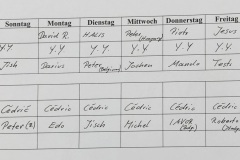 Sonntag Montag Dienstag Mittwoch Donnerstag Freitag
David R. HALIS Peter (Hungary) Piotr Jesus
Y.Y. Y.Y. Y.Y. Y.Y. Y.Y. Y.Y.
Jish Darius Peter Jochen
Cédric Cédric Cédric Cédric Cédric Cédric
Peter (2) Edo Jisch Michel Roberto